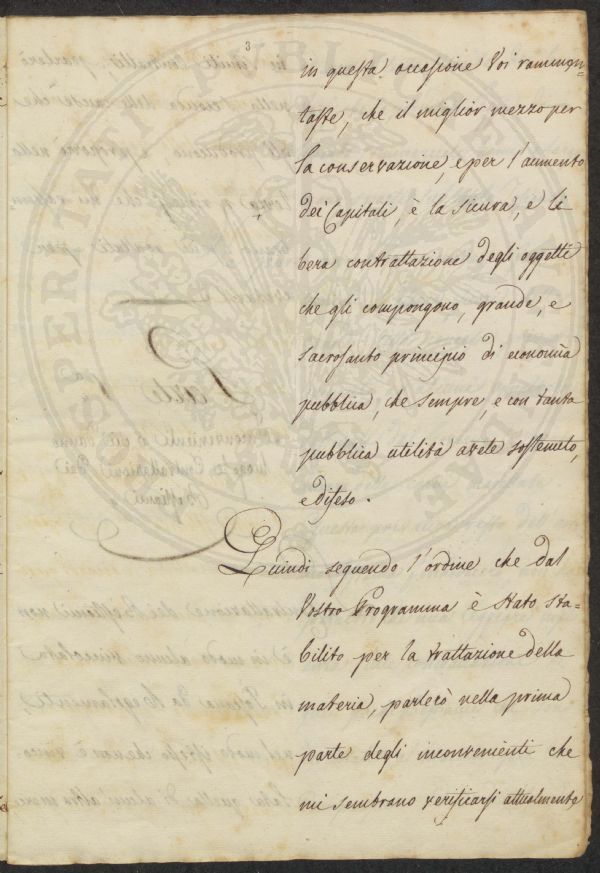 3
in questa occasione Voi rammen-
taste, che il miglior mezzo per
la conservazione, e per l'aumento
dei Capitali, è la sicura, e li
bera contrattazione degli oggetti
che gli compongono, grande, e
sacrosanto principio di economia
pubblica, che sempre, e con tanta
pubblica utilità avete sostenuto,
e difeso.
Quindi seguendo l'ordine che dal
Vostro Programma è stato sta=
bilito per la trattazione della
materia, parlerò nella prima
parte degli inconvenienti che
mi sembrano verificarsi attualmente